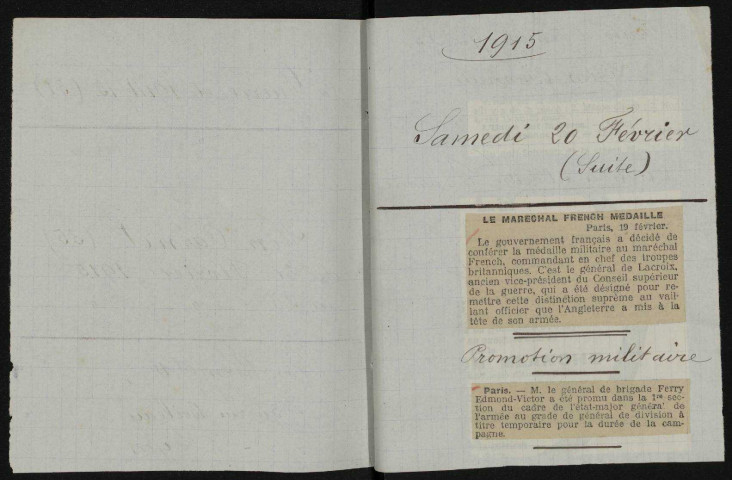 1915
Samedi 20 Février
(Suite)
LE MARECHAL FRENCH MEDAILLE
Paris, 19 février.
Le gouvernement français a décidé de
conférer la médaille militaire au maréchal
French, commandant en chef des troupes
britanniques. C'est le général de Lacroix,
ancien vice-président du Conseil supérieur
de la guerre, qui a été désigné pour re-
mettre cette distinction suprême au vail-
lant officier que l'Angleterre a mis à la
tête de son armée.
Promotion militaire
Paris. — M. le général de brigade Ferry
Edmond-Victor a été promu dans la 1re sec-
tion du cadre de l'état-major général de
l'armée au grade de général de division à
titre temporaire pour la durée de la cam-
pagne.